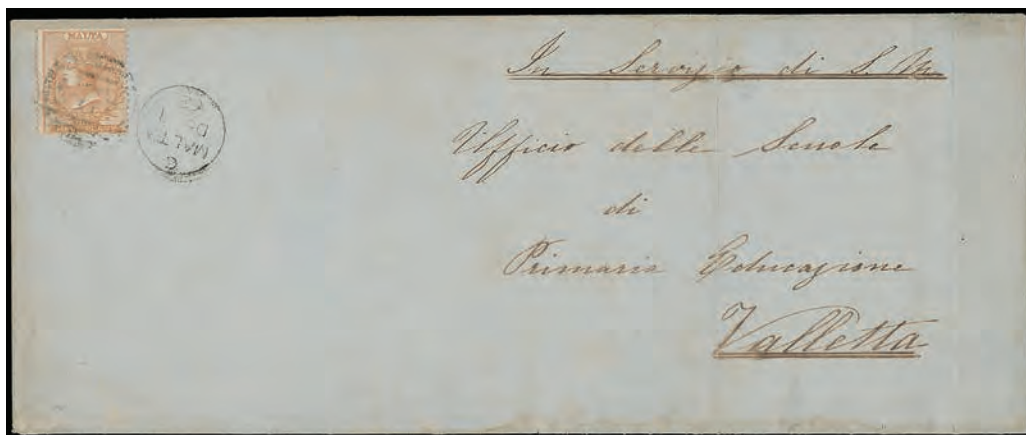 MALTA
In Servizio di S. M.
Ufficio delle Scuole
di
Primaria Educazione
Valletta
MALTA